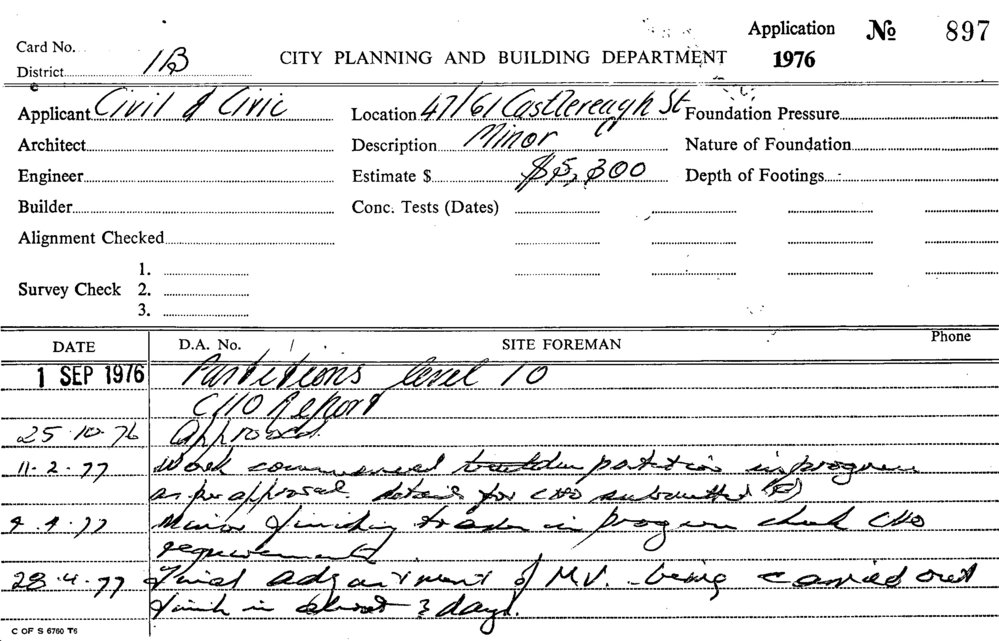 Application № 897
Card No.
CITY PLANNING AND BUILDING DEPARTMENT 1976
District 1B
Applicant Civil & Civic Location 47/61 Castlereagh St Foundation Pressure
Architect Description Minor Nature of Foundation
Engineer Estimate $ $5,300 Depth of Footings
Builder Conc. Tests (Dates)
Alignment Checked
1.
Survey Check 2.
3.
DATE D.A. No. SITE FOREMAN Phone
1 SEP 1976 Partitions level 10
CHO Report
25.10.76 Approved.
11-2.77 Work commenced partition in progress
as per approval details for CHO submitted
9.4.77 Minor finishing trades in progress check CHO
requirements
28.4.77 Final adjustment of M.V. being carried out
finish in about 3 days.
C OF S 6760 T6